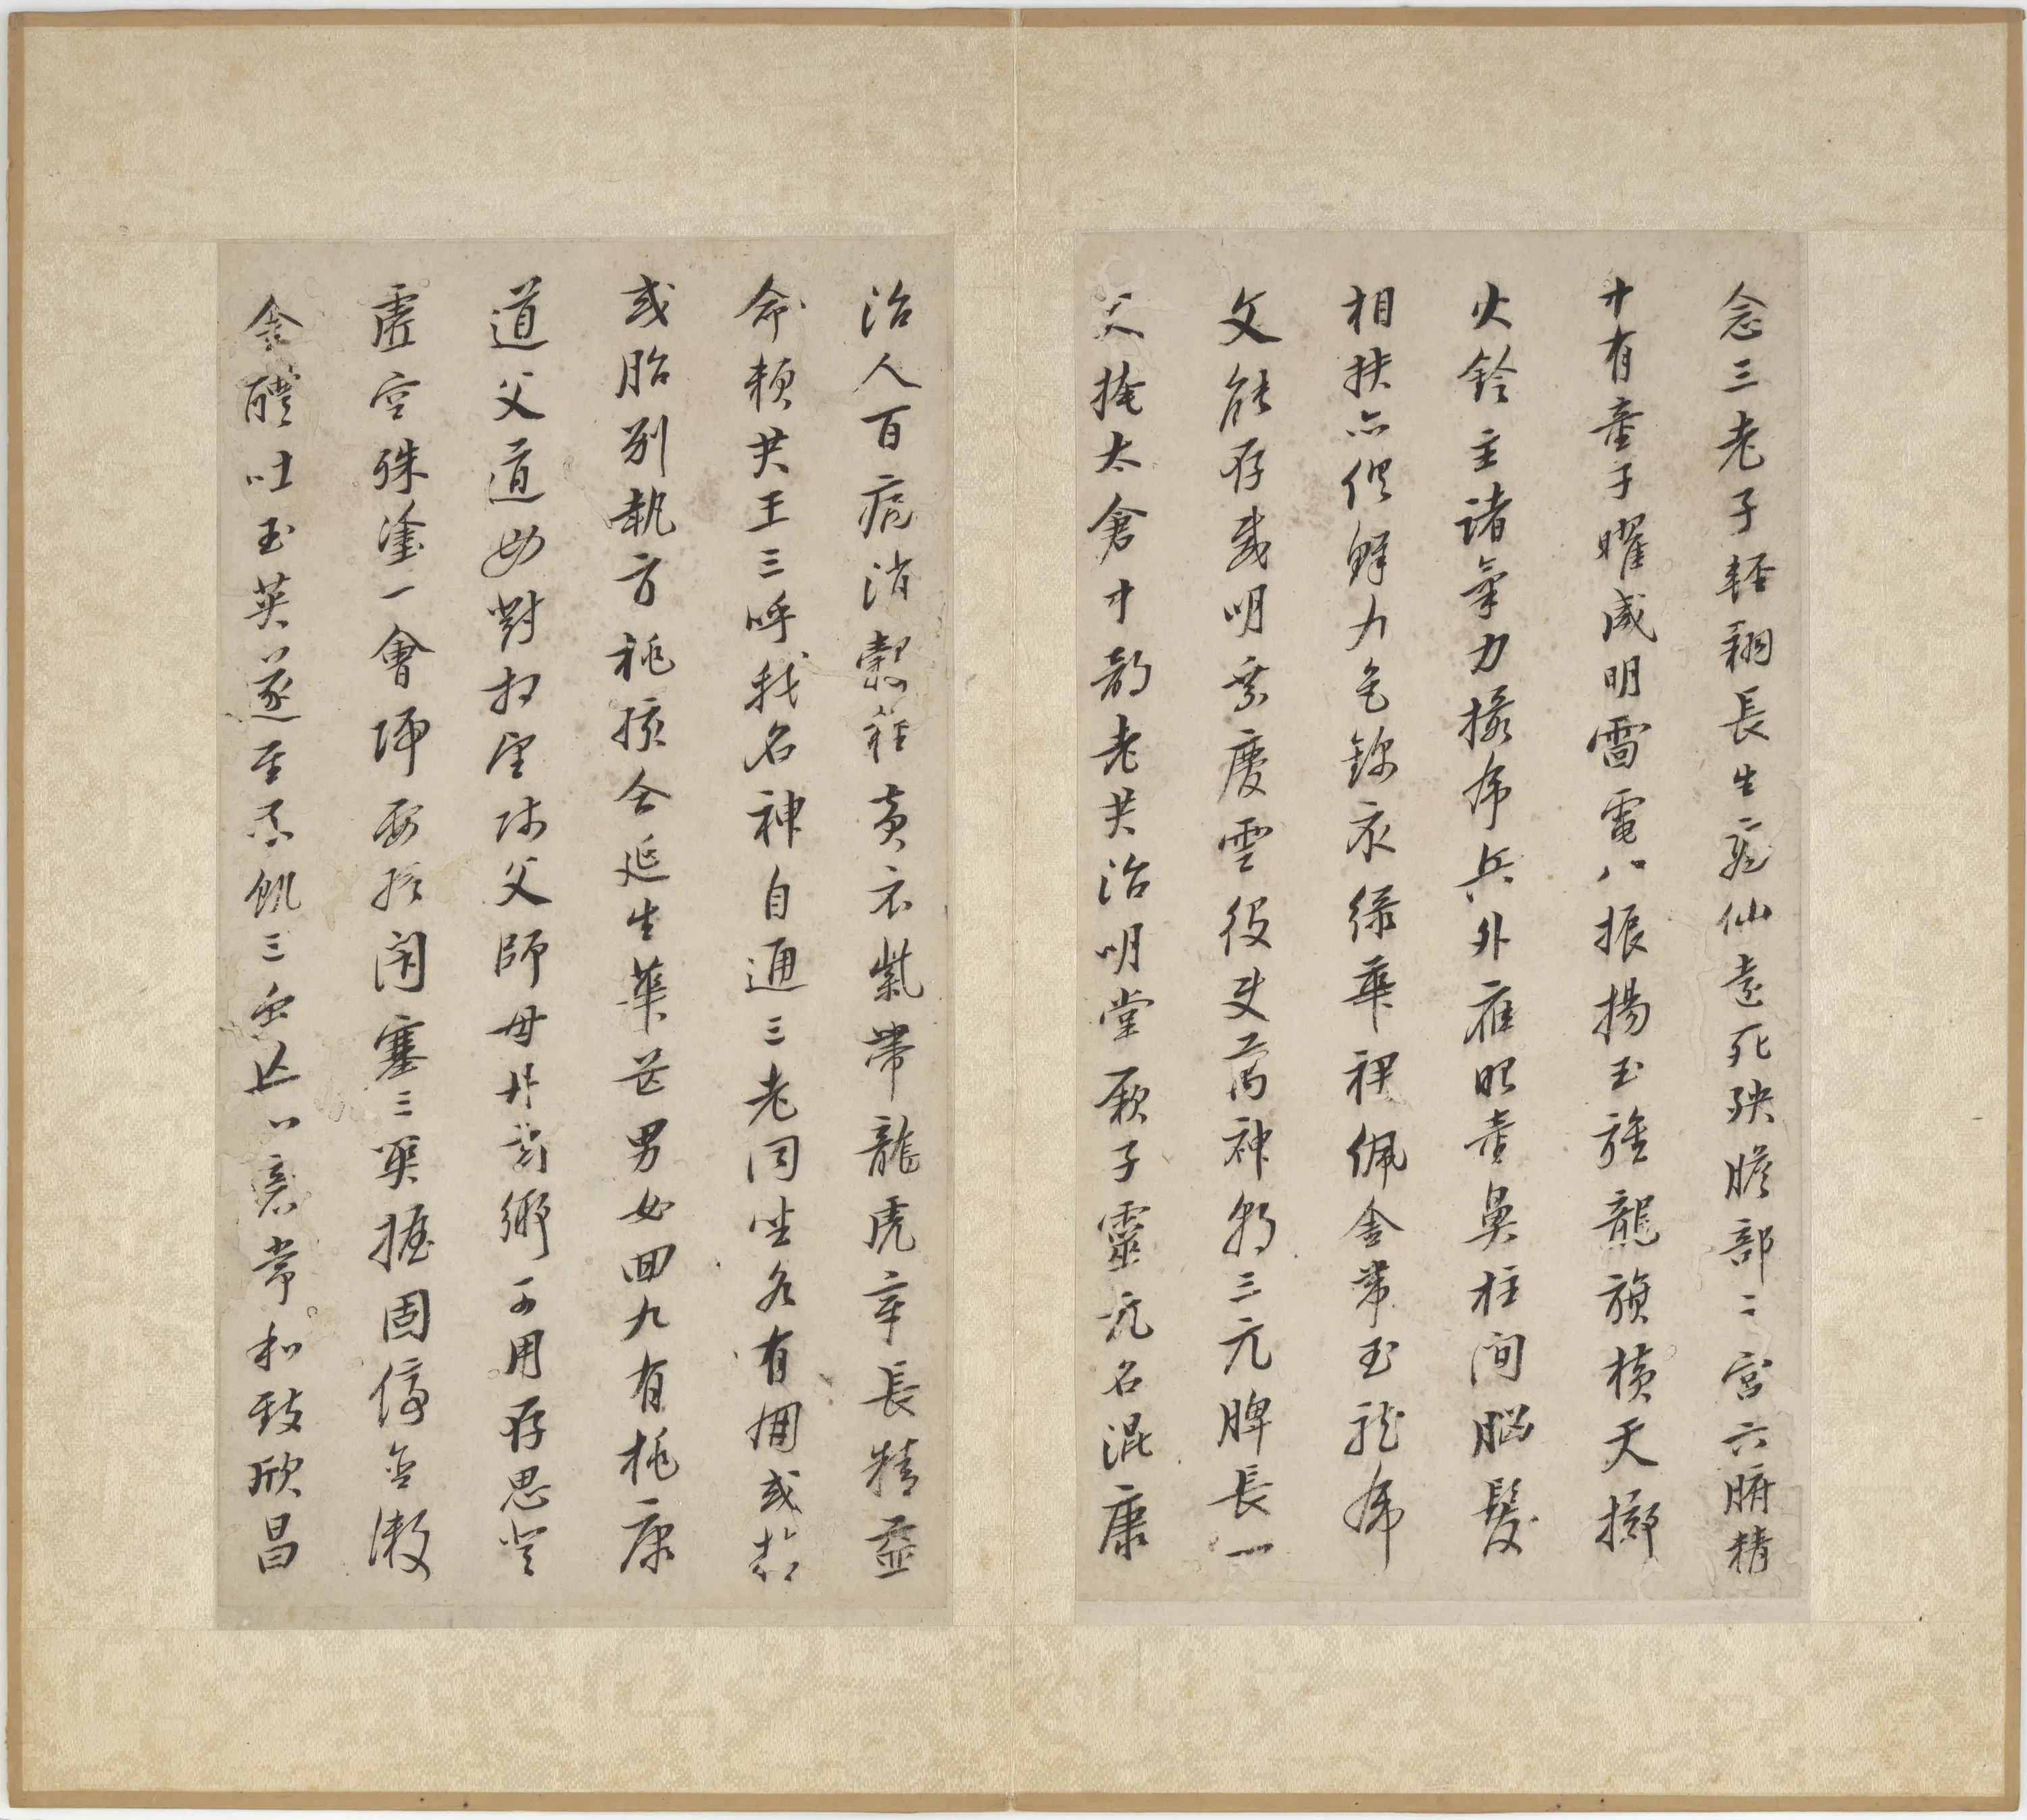 念三老子輕翔長生飛仙遠死殃膽部之宮六腑精
中有童子曜威明雷電八振揚玉旌龍旗橫天擲
火鈴主諸氣力攝虎兵外應眼童鼻柱間腦髮
相扶亦俱鮮九色錦衣綠華裙佩金帶玉龍虎
文能存威明乘慶雲役使萬神朝三元脾長一
尺掩太倉中部老君治明堂厥子靈元名混康
治人百病消穀糧黃衣紫帶龍虎章長精益
命賴君王三呼我名神自通三老同坐各有朋或精
或胎別執方桃孩合延生華芒男女回九有桃康
道父道母對相望師父師母丹玄鄉可用存思登
虛空殊塗一會歸要終閉塞三關握固停含漱
金醴吐玉英遂至不飢三蟲亡心意常和致欣昌